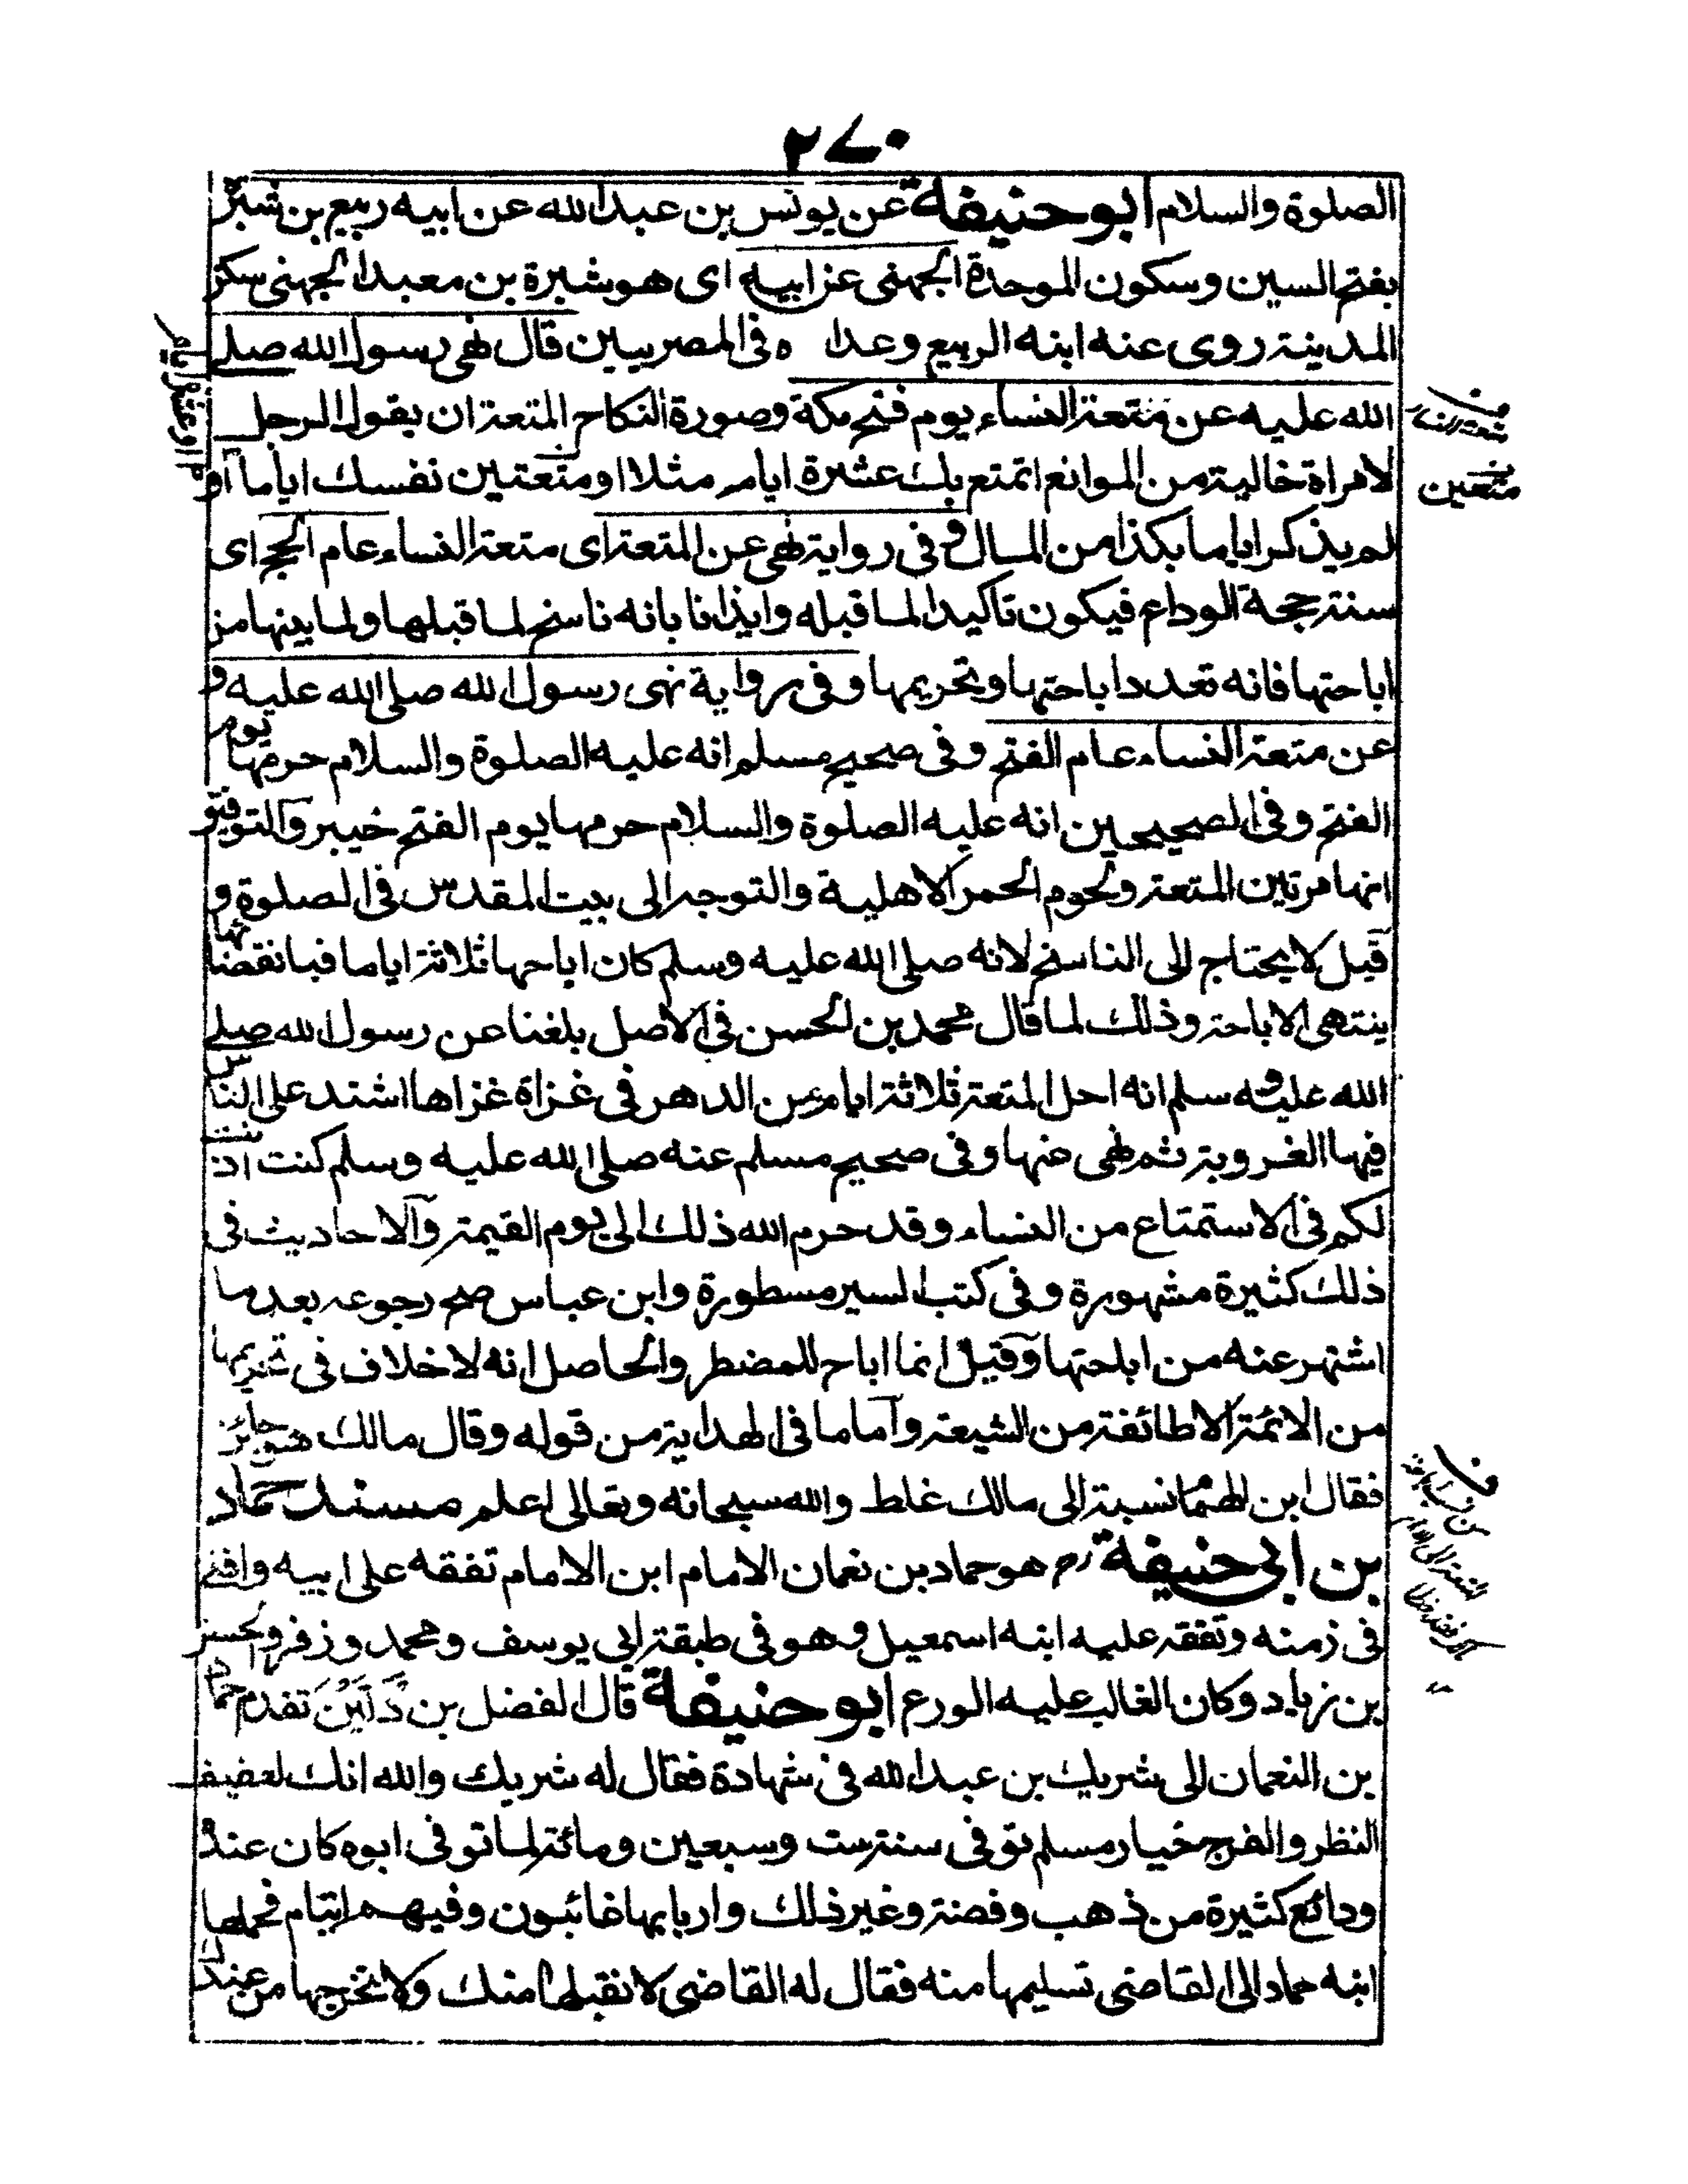 ٢٧٠
الصلوة والسلام ابو حنيفة عن يونس بن عبد الله عن ابيه ربيع بن شبرة
بفتح السين وسكون الموحدة الجهنى عن ابيه اى هو شبرة بن معبد الجهنى سكن
المدينة روى عنه ابنه الربيع وعدا ه فى المصريين قال نهى رسول الله صلى
الله عليه عن متعة النساء يوم فتح مكة وصورة النكاح المتعة ان يقول الرجل
لامراة خالية من الموانع اتمتع بك عشرة ايام مثلا او متعتين نفسك اياما او
لم يذكر اياما بكذا من المال و فى رواية نهى عن المتعة اى متعة النساء عام الحج اى
سنة حجة الوداع فيكون تاكيدا لما قبله وايذانا بانه ناسخ لما قبلها ولما بينها من
اباحتها فانه تعدد اباحتها وتحريمها وفى رواية نهى رسول الله صلى الله عليه و
عن متعة النساء عام الفتح وفى صحيح مسلم انه عليه الصلوة والسلام حرمها يوم
الفتح وفى الصحيحين انه عليه الصلوة والسلام حرمها يوم الفتح خيبر والتوفيق
انها مرتين المتعة ولحوم الحمر الاهلية والتوجه الى بيت المقدس فى الصلوة و
قيل لا يحتاج الى الناسخ لانه صلى الله عليه وسلم كان اباحها ثلاثة اياما فبانقضائها
ينتهى الاباحة وذلك لما قال محمد بن الحسن فى الاصل بلغنا عن رسول الله صلى
الله عليه و سلم انه احل المتعة ثلاثة ايام من الدهر فى غزاة غزاها اشتد على الناس
فيها الغروبة ثم نهى عنها وفى صحيح مسلم عنه صلى الله عليه وسلم كنت اذنت
لكم فى الاستمتاع من النساء وقد حرم الله ذلك الى يوم القيمة والاحاديث فى
ذلك كثيرة مشهورة وفى كتب السير مسطورة وابن عباس صح رجوعه بعد ما
اشتهر عنه من اباحتها وقيل انما اباح للمضطر والحاصل انه لا خلاف فى تحريمها
من الائمة الا طائفة من الشيعة واما ما فى الهداية من قوله وقال مالك هو جائز
فقال ابن الهمام نسبة الى مالك غلط والله سبحانه وتعالى اعلم مسند حماد
بن ابى حنيفة رح هو حماد بن نعمان الامام ابن الامام تفقه على ابيه وافتى
فى زمنه وتفقه عليه ابنه اسمعيل وهو فى طبقة ابى يوسف ومحمد وزفر والحسن
بن زياد وكان الغالب عليه الورع ابو حنيفة قال الفضل بن دكين تقدم حماد
بن النعمان الى شريك بن عبد الله فى شهادة فقال له شريك والله انك لعفيف
النظر والفرج خيار مسلم توفى سنة ست وسبعين ومائة لما توفى ابوه كان عنده
ودائع كثيرة من ذهب وفضة وغير ذلك واربابها غائبون وفيهم ايتام فحملها
ابنه حماد الى القاضى تسليمها منه فقال له القاضى لا نقبلها منك ولا نخرجها من عندك
متعة النساء
متعين